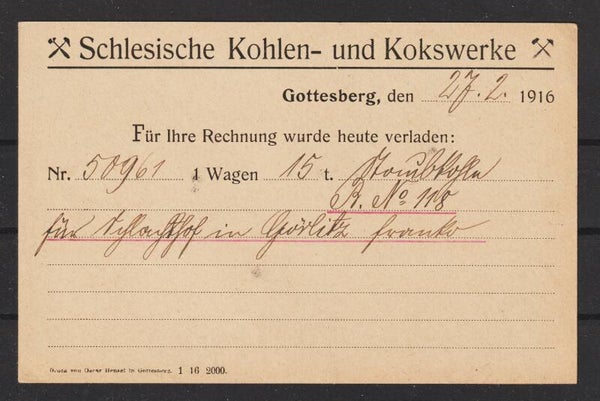 Schlesische Kohlen- und Kokswerke
Gottesberg, den 27. 2. 1916
Für Ihre Rechnung wurde heute verladen:
Nr. 50961 1 Wagen 15 t. Staubkohle
R. No 118
für Schlachthof in Görlitz franko
Druck von Oscar Hensel in Gottesberg. 1 16 2000.